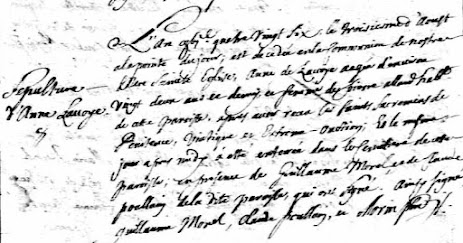 L'An gbi.c quatre vingt six, le troisiesme d'Aoust
a la pointe du jour, est decedée en la Communion de nostre
Mere Saincte Eglise, Anne de Lavoye aagée d'environ
Sepulture
d'Anne Lavoye.
vingt deux ans et demy, et femme de Pierre allard hab.t
de cette paroisse, apres avoir receu les saints sacremens de
Penitence, Viatique et Extreme-Onction; Et le mesme
jour apres midy a esté enterrée dans le Cimitiere de cette
paroisse, en presence de Guillaume Morel, et de Claude
poullain de la dite paroisse, qui ont signé. Ainsy signé
guillaume Morel, Claude poullain, et Morin